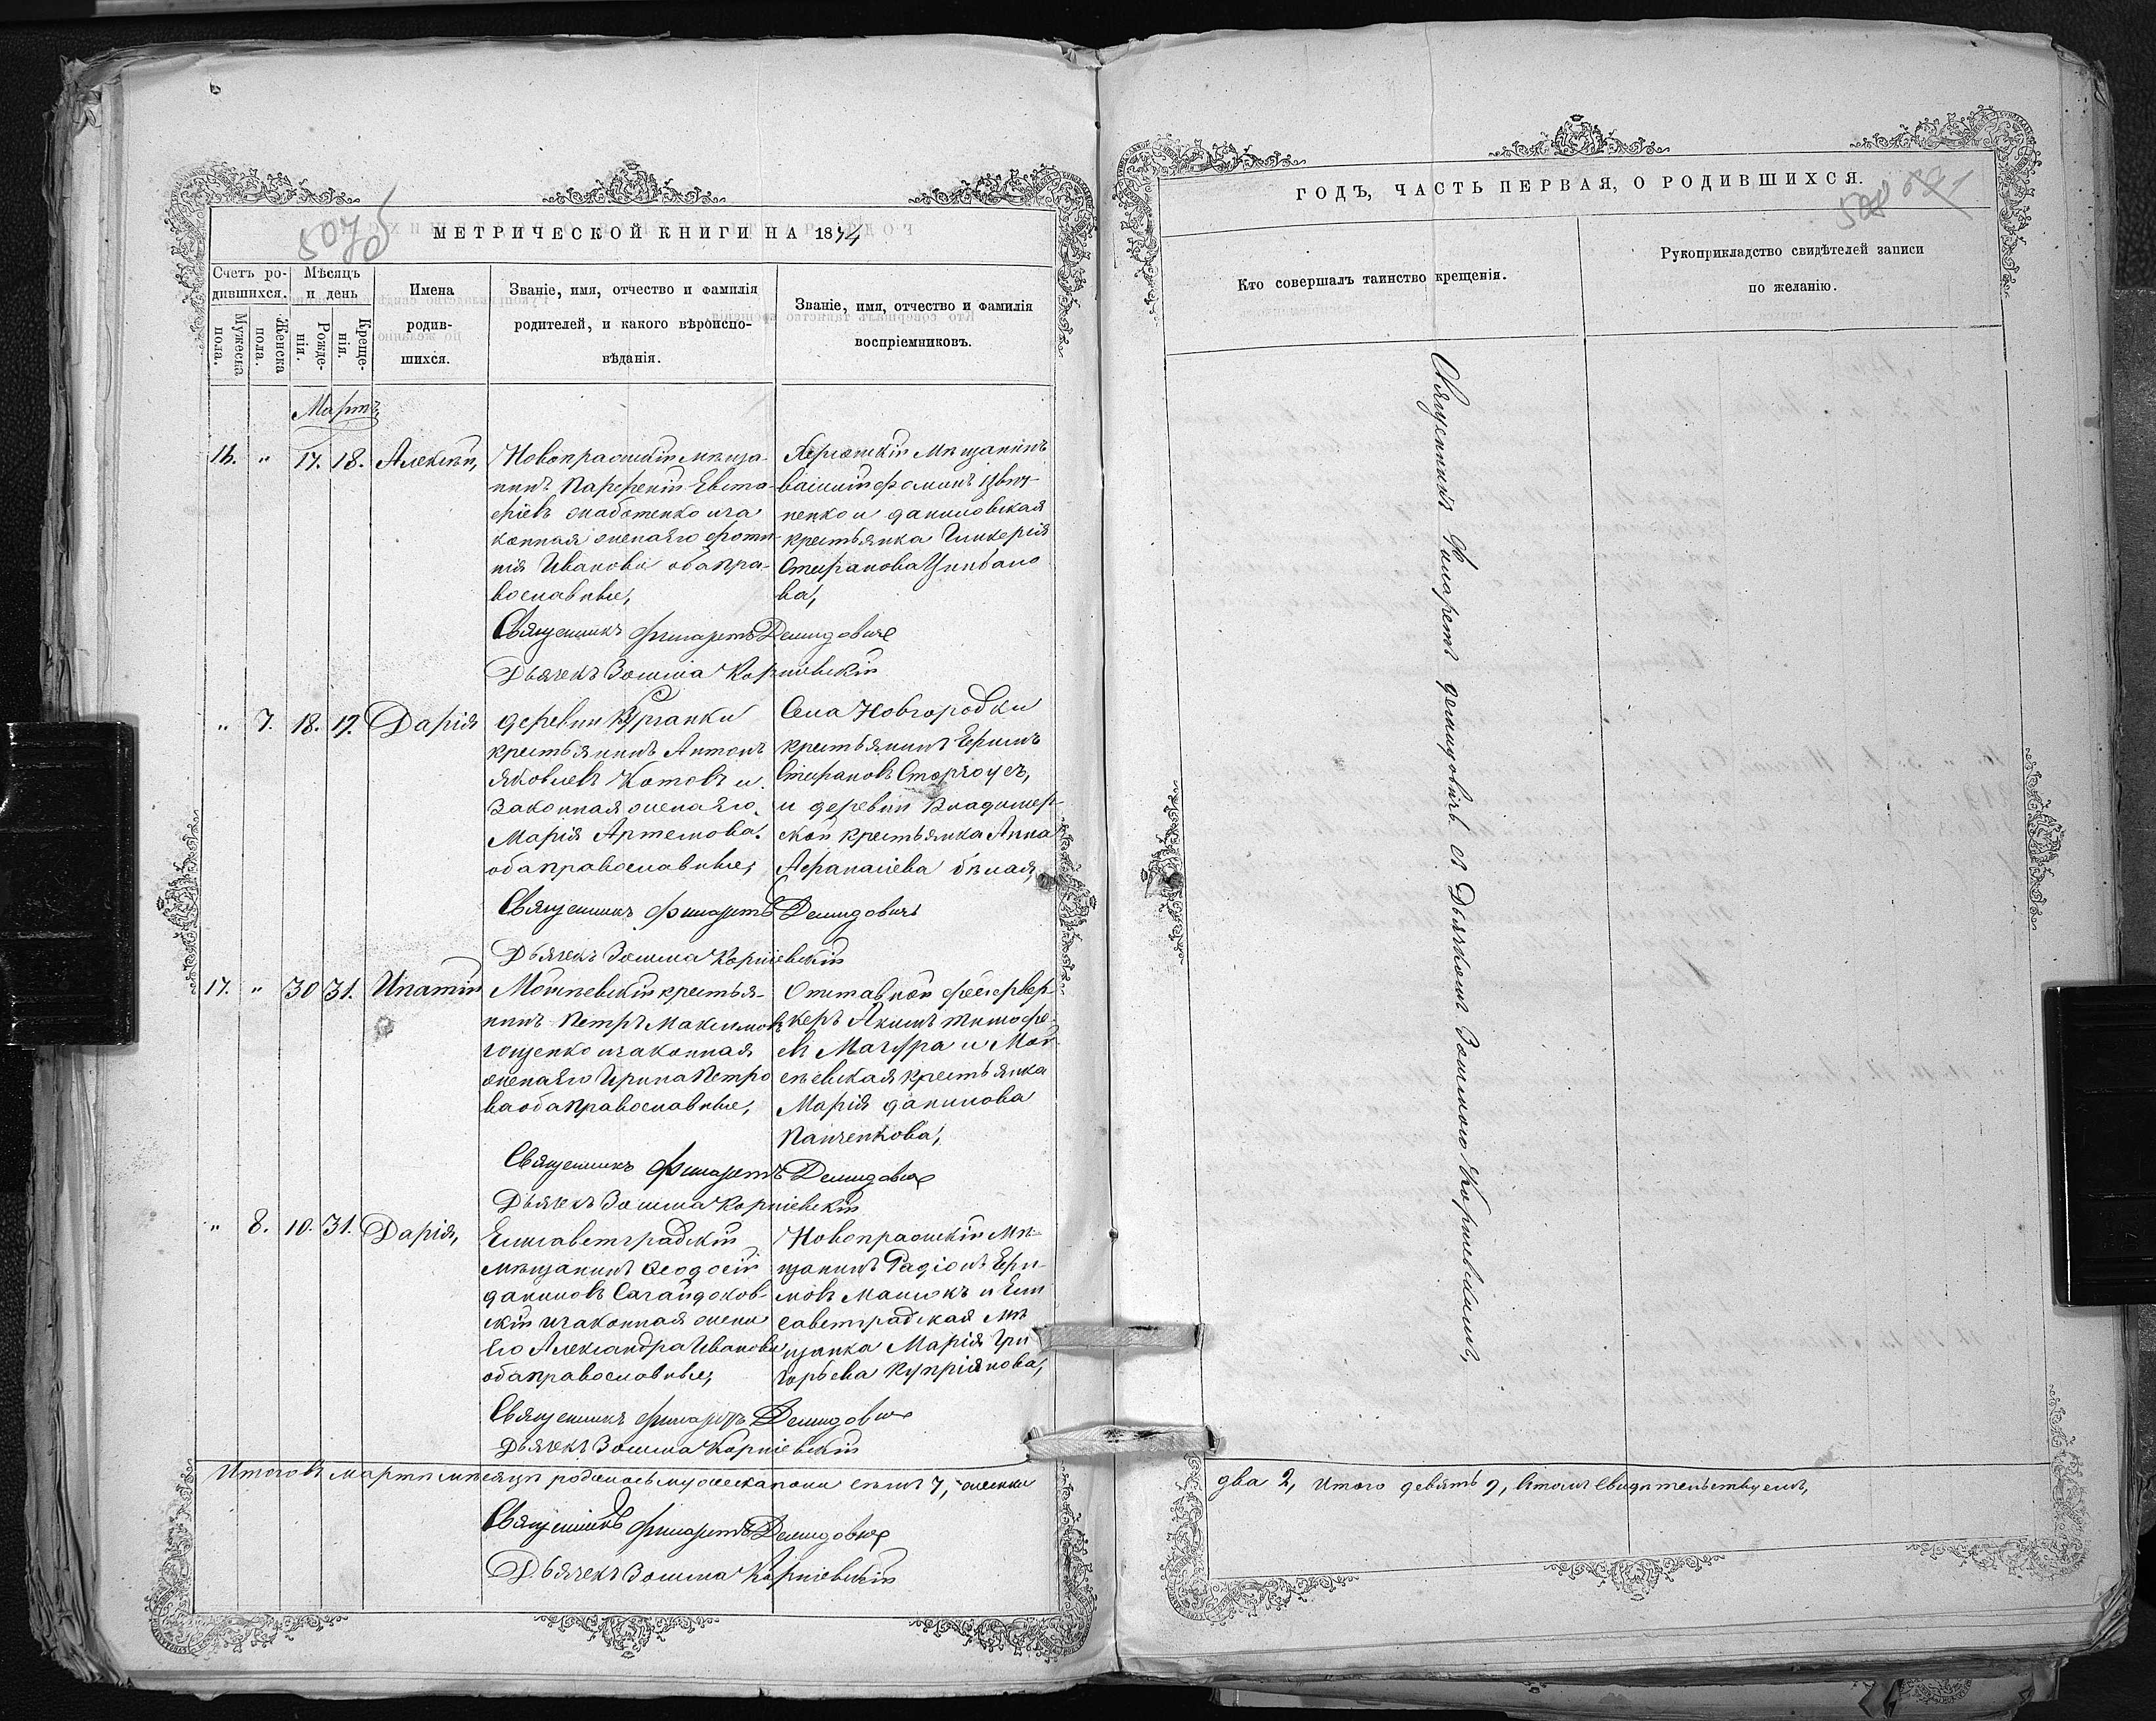 507 об
МЕТРИЧЕСКОЙ КНИГИ НА 1874
Счетъ ро-
дившихся.
Мужеска
пола.
Женска
пола.
Мѣсяцъ
и день
Рожде-
нія.
Креще-
нія.
Имена
родив-
шихся.
Званіе, имя, отчество и фамилія
родителей, и какого вѣроиспо-
вѣданія.
Званіе, имя, отчество и фамилія
воспріемниковъ.
Мартъ
16. " 17. 18. Алексѣй,
Новопражскій мѣща-
нинъ Парфеній Евста-
фіевъ и за
конная жена его Фоти-
нія Иванова оба пра-
вославные,
Херсонскій мѣщанинъ
Василій Фоминъ
и Даниловская
крестьянка Гликерія
Стефанова Цибано
ва,
Священникъ Филаретъ Демидовичъ
Дьячекъ Зосима Корніевскій
" 7. 18. 19. Дарія
деревни Курганки
крестьянинъ Антонъ
Яковлевъ Котовъ и
законная жена его
Марія Артемова.
оба православные,
Села Новгородки
крестьянинъ Ефимъ
Стефановъ Сторчоусъ,
и деревни Владимер-
ской крестьянка Анна
Афанасіева Бѣлая,
Священникъ Филаретъ Демидовичъ
Дьячекъ Зосима Корніевскій
17. " 30 31. Ипатій
крестья-
нинъ Петръ Максимовъ
Гощенко и законная
жена его Ирина Петро
ва оба православные,
Отставной фейервер-
керъ Акимъ Тимофе-
евъ Мазура и Мой-
сѣевская крестьянка
Марія Данилова
Панченкова,
Священникъ Филаретъ Демидовичъ
Дьячекъ Зосима Корніевскій
" 8. 10. 31. Дарія,
Елисаветградскій
мѣщанинъ Феодосій
Даниловъ Сагайдаков-
скій и законная жена
его Александра Иванова
оба православные,
Новопражскій мѣ-
щанинъ Радіонъ Ефи-
мовъ Манюкъ и Ели
саветградская мѣ
щанка Марія Гри
горьева Купріянова,
Священникъ Филаретъ Демидовичъ
Дьячекъ Зосима Корніевскій
Итого въ мартѣ мѣсяцѣ родилось мужеска пола семъ 7, женска
Священникъ Филаретъ Демидовичъ
Дьячекъ Зосима Корніевскій
ГОДЪ, ЧАСТЬ ПЕРВАЯ, О РОДИВШИХСЯ.
508
Кто совершалъ таинство крещенія.
Рукоприкладство свидѣтелей записи
по желанію.
Священникъ Филаретъ Демидовичъ съ Дьячкомъ Зосимою Корніевскимъ,
два 2, итого девять 9, въ томъ свидѣтельствуемъ,